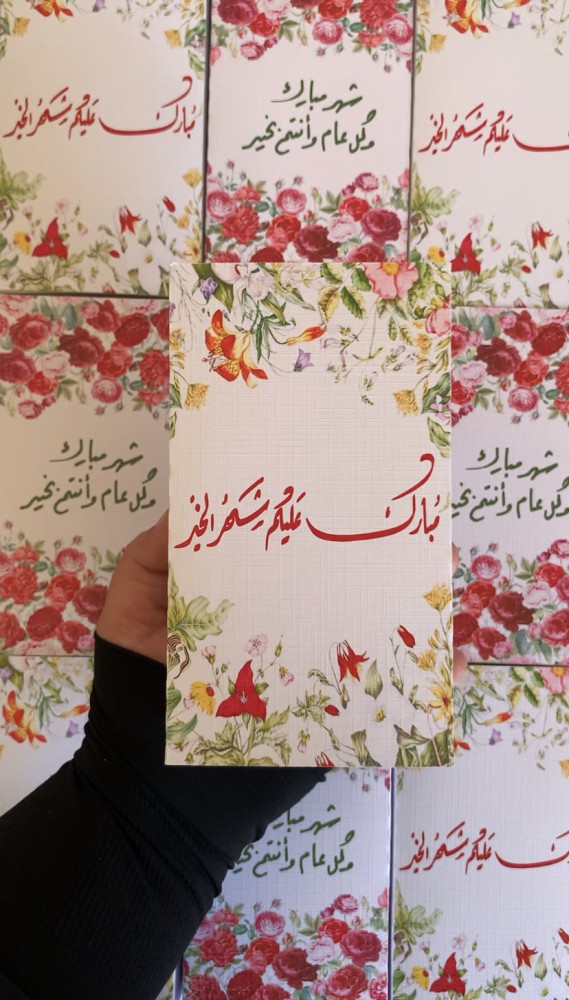 مُبارك عَليكم شهرُ الخَير
شهر مبارك
وكل عام وأنتم بخير
مُبارك عَليكم شهرُ الخَير
مُبارك عَليكم شهرُ الخَير
شهر مبارك
وكل عام وأنتم بخير
مُبارك عَليكم شهرُ الخَير
شهر مبارك
وكل عام وأنتم بخير
شهر مبارك
وكل عام وأنتم بخير
مُبارك عَليكم شهرُ الخَير